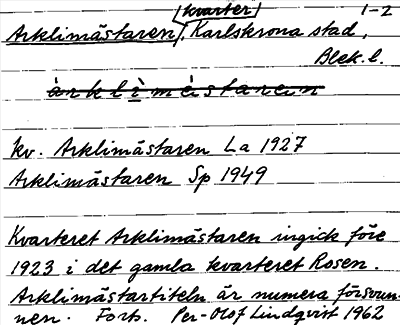 kvarter 1-2
Arklimästaren, Karlskrona stad,
Blek. l.
àrklìmästaren
kv. Arklimästaren La 1927
Arklimästaren Sp 1949
Kvarteret Arklimästaren ingick före
1923 i det gamla kvarteret Rosen.
Arklimästartiteln är numera försvun-
nen. Forts. Per-Olof Lindqvist 1962